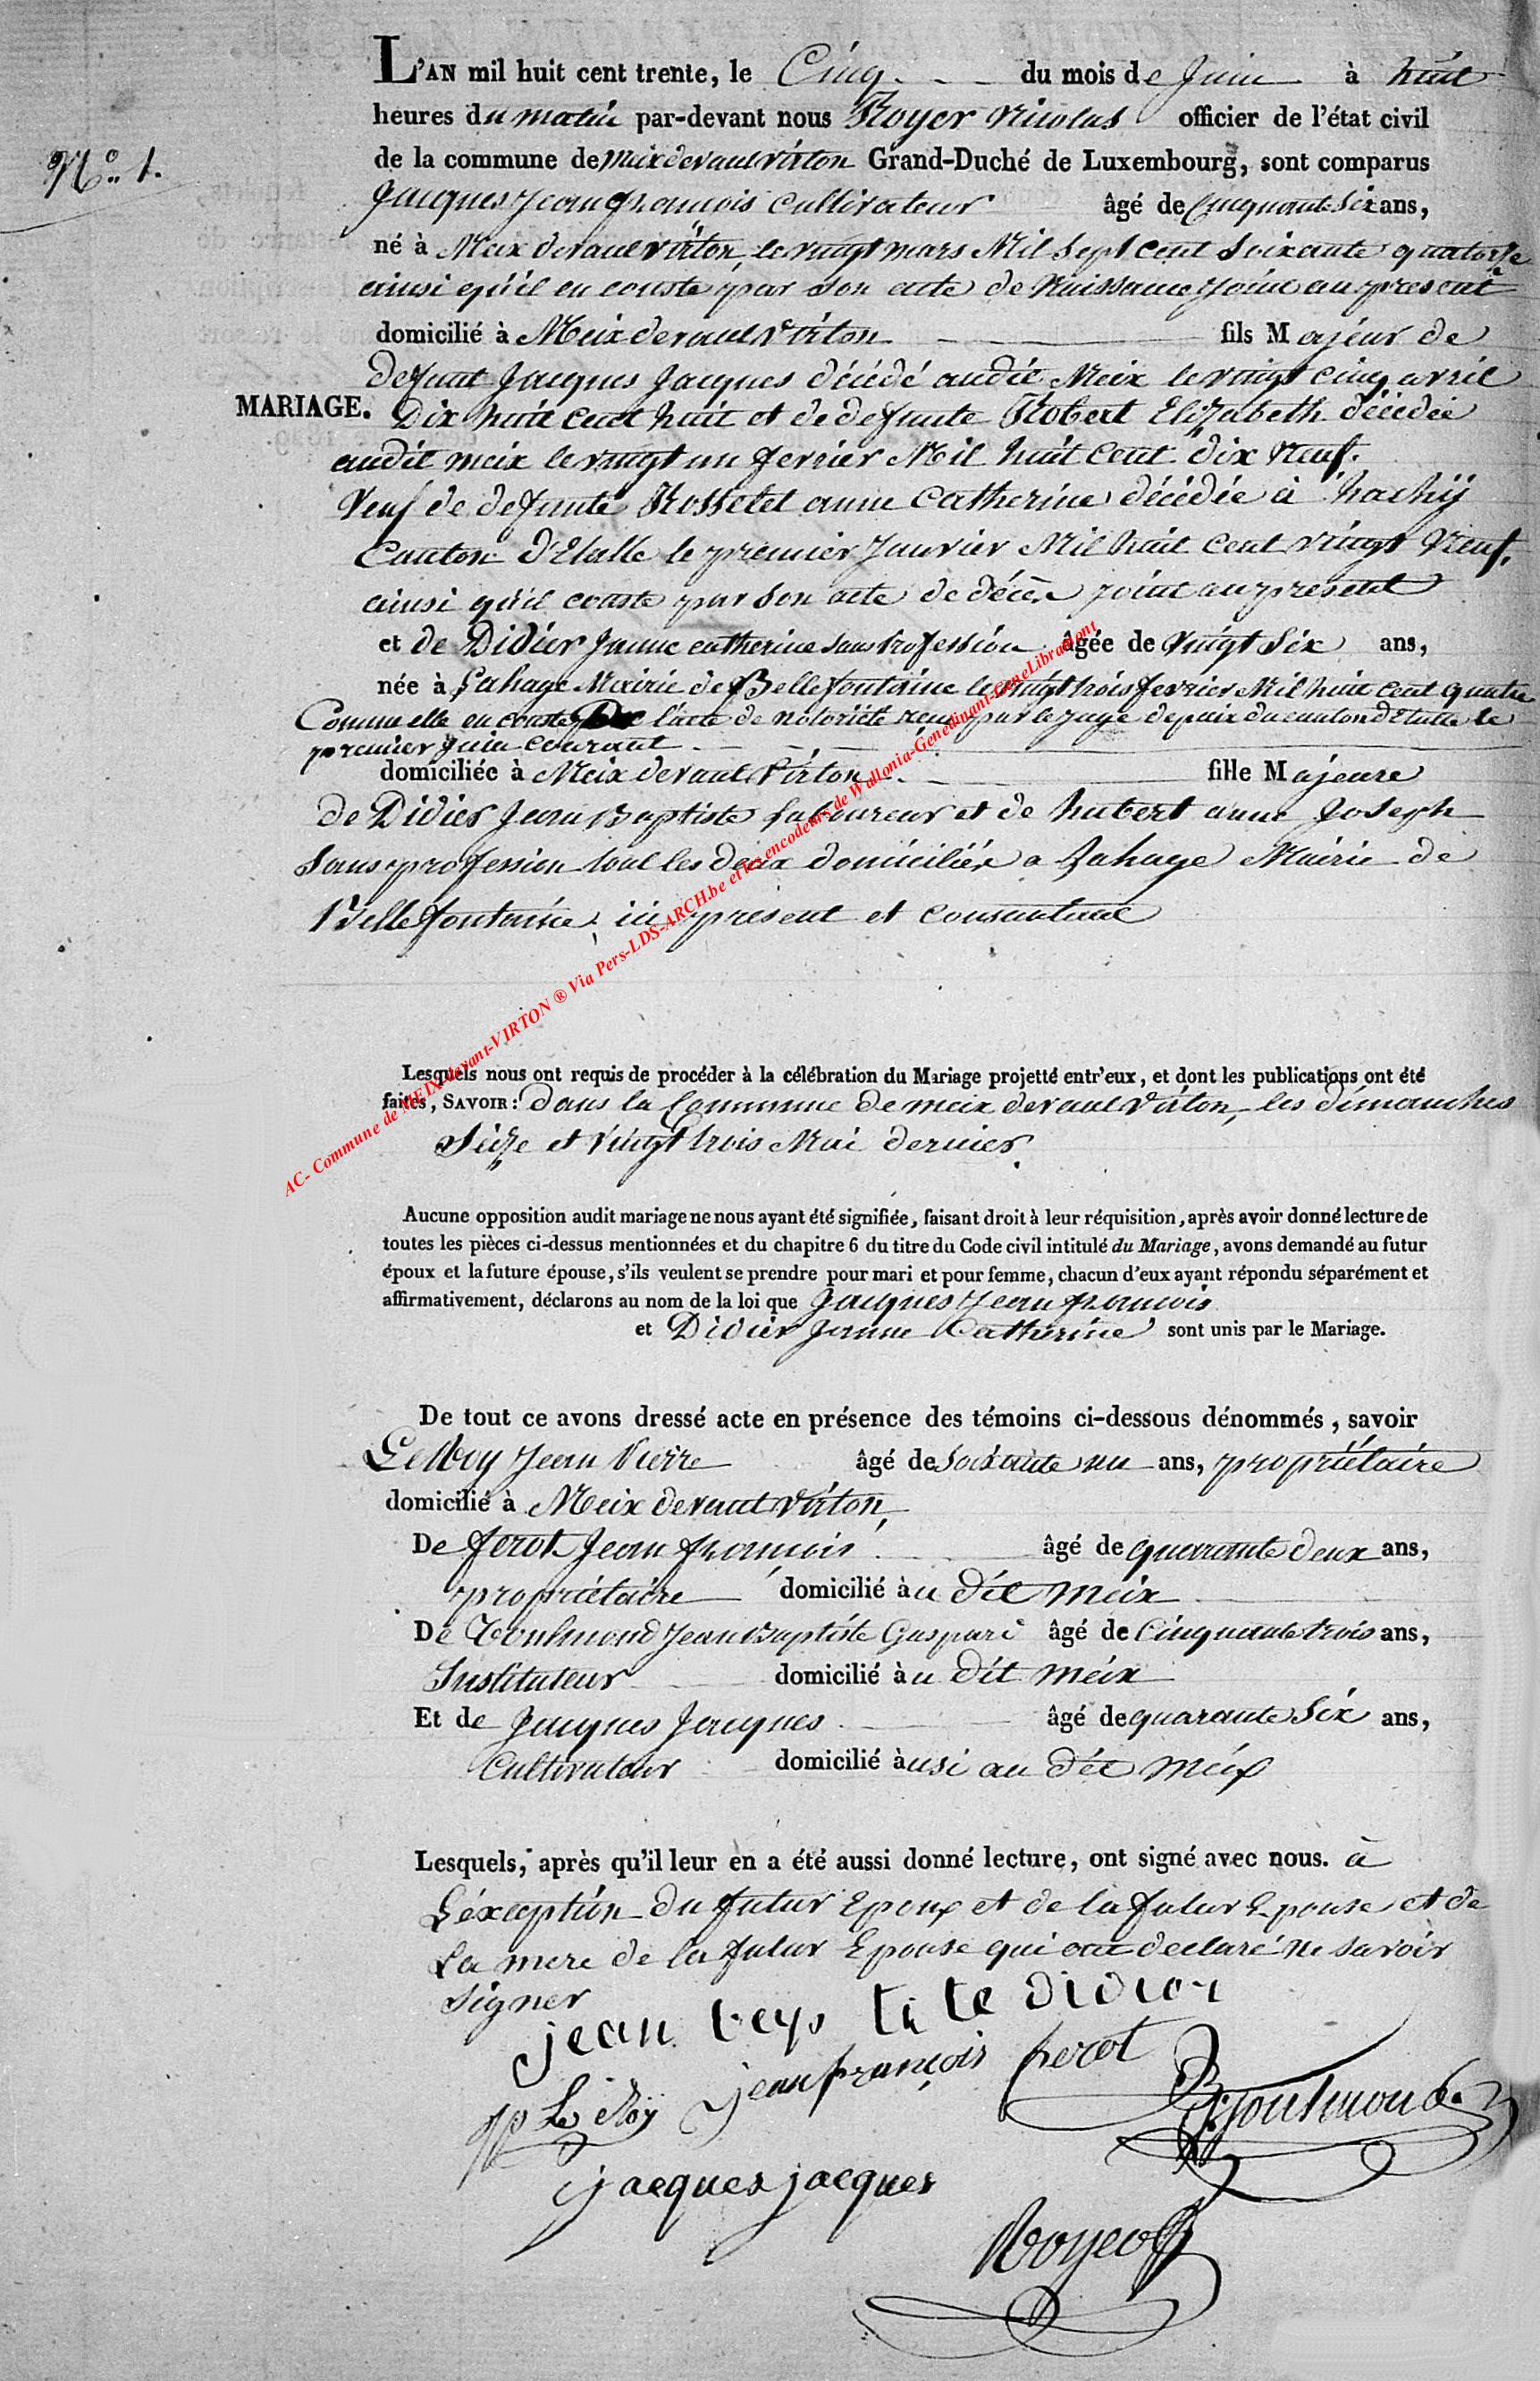 L'AN mil huit cent trente, le Cinq du mois de Juin à huit
heures du matin par-devant nous Royer Nicolas officier de l'état civil
N.o 1.
de la commune de meix devant virton Grand-Duché de Luxembourg, sont comparus
Jacques Jean françois Cultivateur âgé de Cinquante Six ans,
né à Meix devant virton, le vingt mars Mil Sept cent Soixante quatorze
ainsi qu'il en conste par son acte de Naissance joint au present
domicilié à Meix devant Virton fils Majeur de
defunt Jacques Jacques décédé audit Meix le vingt cinq avril
MARIAGE.
Dix huit cent huit et de defunte Robert Elizabeth décédée
audit meix le vingt un fevrier Mil huit Cent dix Neuf.
Veuf de defunte Rosselet anne Catherine décédée à hachÿ
Canton d'Etalle le premier Janvier Mil huit Cent vingt Neuf.
ainsi qu'il conste par son acte de décès joint au present
et de Didier Janne catherine sans Profession âgée de vingt Six ans,
née à Lahage Mairie de Bellefontaine le vingt trois fevrier Mil huit cent quatre
Comme elle en conste par l'acte de notoriété rendu par le juge de paix du canton d'Etalle le
premier juin courant
domiciliée à Meix devant Virton fille Majeure
de Didier Jean Baptiste Laboureur et de hubert anne Joseph
Sans profession tout les deux domiciliés a Lahage Mairie de
Bellefontaine, ici present et consentant
Lesquels nous ont requis de procéder à la célébration du Mariage projetté entr'eux, et dont les publications ont été
faites, SAVOIR: dans la Commune de meix devant Virton, les dimanches
Seize et Vingt trois Mai dernier.
Aucune opposition audit mariage ne nous ayant été signifiée, faisant droit à leur réquisition, après avoir donné lecture de
toutes les pièces ci-dessus mentionnées et du chapitre 6 du titre du Code civil intitulé du Mariage, avons demandé au futur
époux et la future épouse, s'ils veulent se prendre pour mari et pour femme, chacun d'eux ayant répondu séparément et
affirmativement, déclarons au nom de la loi que Jacques Jean françois
et Didier Janne Catherine sont unis par le Mariage.
De tout ce avons dressé acte en présence des témoins ci-dessous dénommés, savoir
Le Roy Jean Pierre âgé de Soixante un ans, propriétaire
domicilié à Meix devant virton,
De ferot Jean françois âgé de quarante deux ans,
propriétaire domicilié àu dit meix
De Toulmond Jean Baptiste Gaspard âgé de Cinquante trois ans,
Instituteur domicilié àu dit meix
Et de Jacques Jacques âgé de quarante Six ans,
Cultivateur domicilié àusi au dit meix
Lesquels, après qu'il leur en a été aussi donné lecture, ont signé avec nous. à
L'éxception du futur Epoux et de la futur Epouse et de
La mere de la futur Epouse qui ont declaré ne savoir
Signer
jean beps ti te didier
JP Le Roÿ jean françois ferot
Toulmond
jacques jacques
Royer
AC- Commune de MEIX-devant-VIRTON ® Via Pers-LDS-ARCH.be et les encodeurs de Wallonia-Genedinant-GeneLibramont